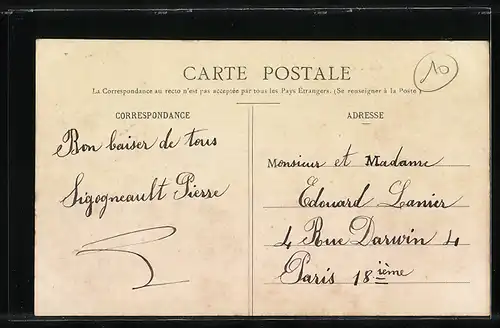 10
CARTE POSTALE
La Correspondance au recto n'est pas acceptée par tous les Pays Étrangers. (Se renseigner à la Poste)
CORRESPONDANCE
Bon baiser de tous
Sigogneault Pierre
ADRESSE
Monsieur et Madame
Edouard Lanier
4 Rue Darwin 4
Paris 18ième